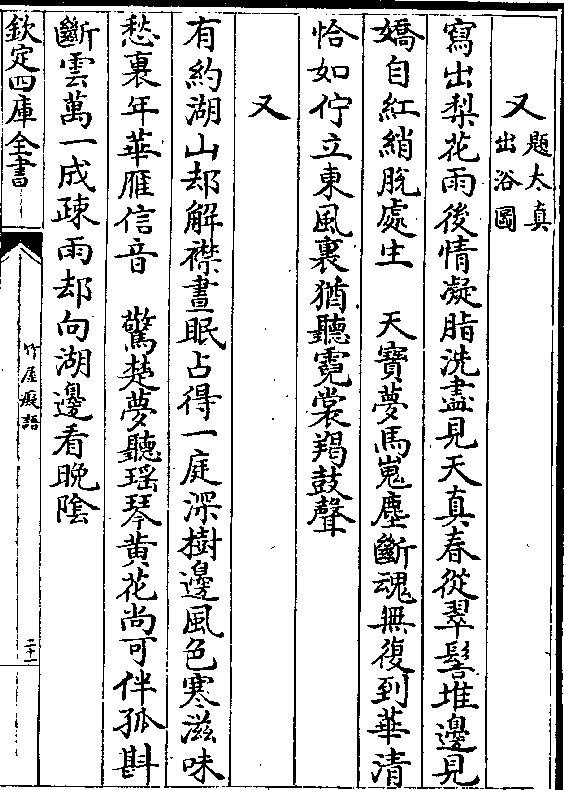 又題太真
出浴圖
寫出梨花雨後情凝脂洗盡見天真春從翠髻堆邊見
嬌自紅綃脫處生　天寶夢馬嵬塵斷魂無復到華清
恰如佇立東風裏猶聽霓裳羯鼓聲
又
有約湖山却解襟晝眠占得一庭深樹邊風色寒滋味
愁裏年華雁信音　驚楚夢聽瑤琴黄花尚可伴孤斟
斷雲萬一成疎雨却向湖邊看晩陰
欽定四庫全書
竹屋癡語
二十一